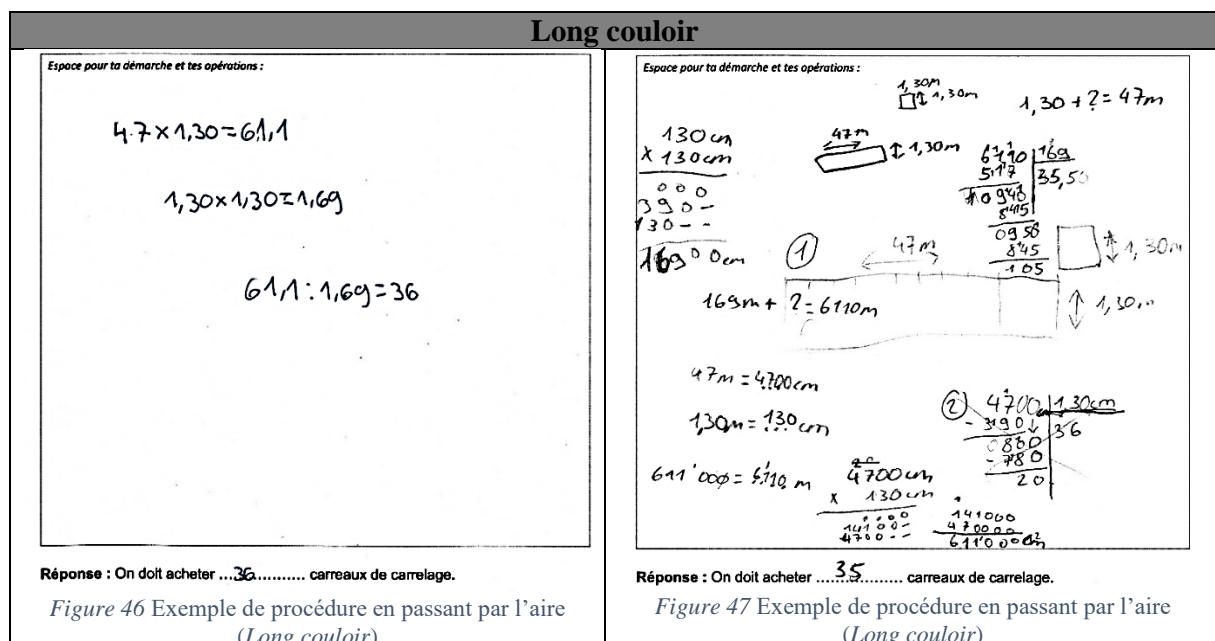 Long couloir
Espace pour ta démarche et tes opérations :
4.7 × 1,30 = 61,1
1,30 × 1,30 = 1,69
61,1 : 1,69 = 36
Réponse : On doit acheter ...36........... carreaux de carrelage.
Figure 46 Exemple de procédure en passant par l'aire
(Long couloir)
Espace pour ta démarche et tes opérations :
1,30m
1,30m
1,30 + ? = 47m
130cm
× 130cm
000
390-
130--
16900cm
47m
1,30m
6110 | 169
517 | 35,5
10940
845
0950
845
105
1,30m
1
47m
169m + ? = 6110m
1,30m
47m = 4700cm
1,30m = 130cm
611'000 = 6110 m
4700cm
× 130cm
0000
14100-
4700--
141000
470000
611000cm
2
4700 | 130cm
- 390 | 36
0800
- 780
20
Réponse : On doit acheter ......35........... carreaux de carrelage.
Figure 47 Exemple de procédure en passant par l'aire
(Long couloir)